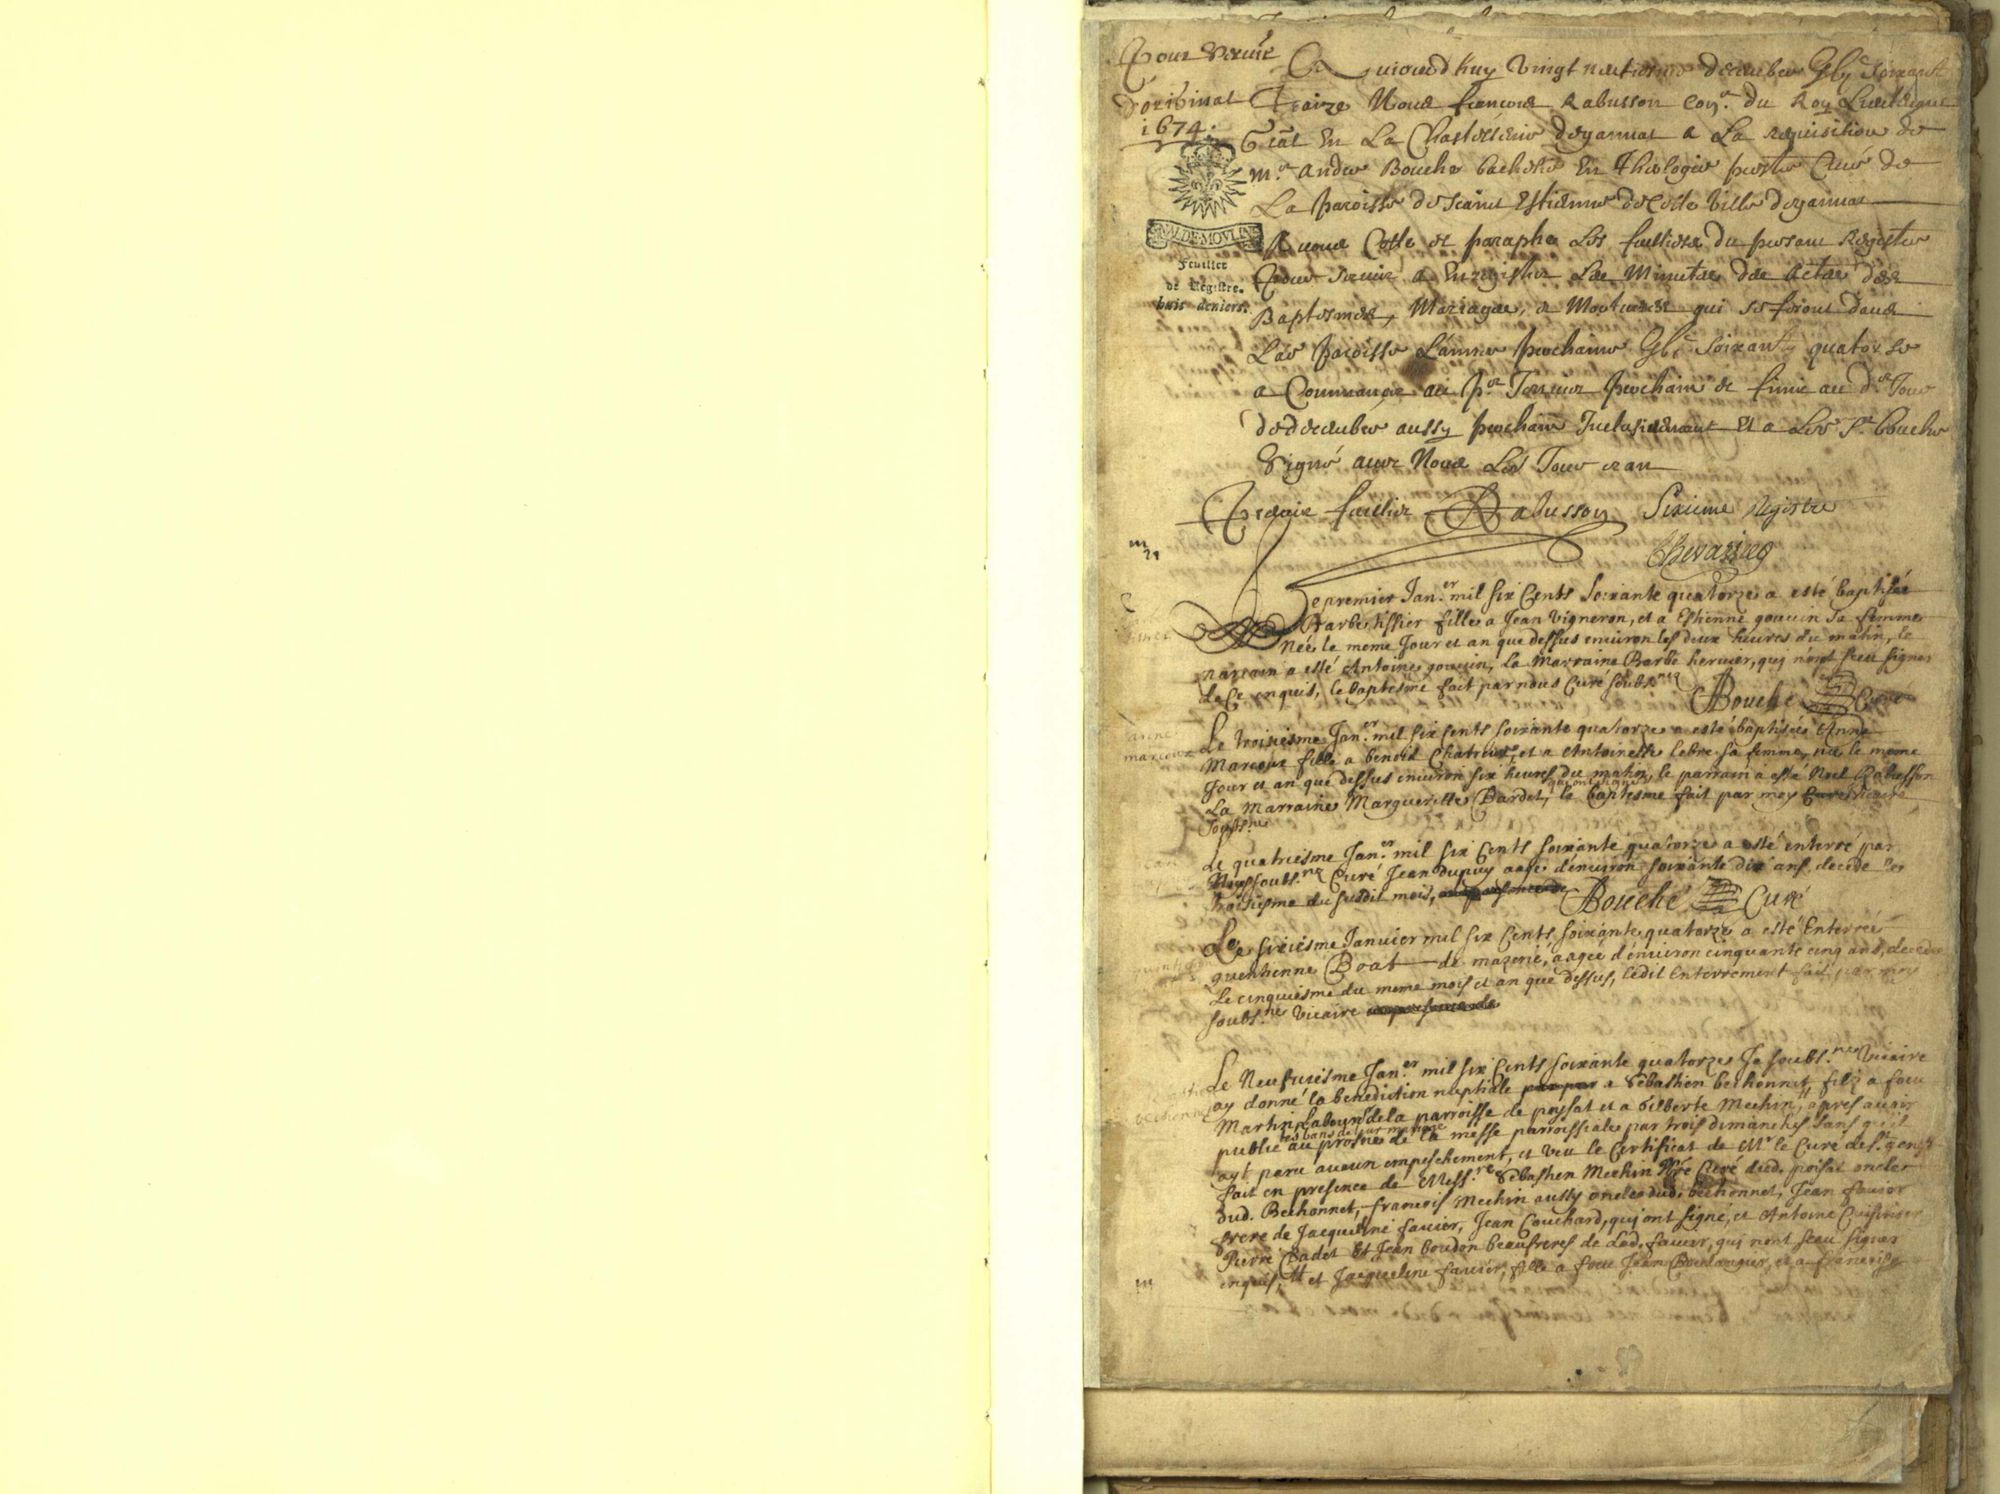 Pour servir
d'original
1674.
Aujourdhuy vingt neufiesme decembre soixante
Treize Nous francois Rabusson Con.er du Roy Lieutenant
Gnal En La Chastellenie degannat a La requisition de
M.re andre Bouche bachelie En Theologie prestre Curé de
La parroisse de sainct Estienne de Cette ville degannat
Avons Cotte et paraphe Les fuilletz du present Registre
Pour servir a Enregistrer Les Minuttes des actes des
Baptesmes, Mariages, et Mortuaires qui se feront dans
Lad parroisse L'année prochaine soixante quatorse
a Commancer au p.er Janvier prochain et finir au d.er Jour
de decembre aussy prochain Inclusivement Et a Led S.r Bouche
Signé avec Nous Les Jour et an
GENAL. DE. MOVLINS
Feuillet
de Registre.
huit deniers.
Premier feuillet Rabusson Sixieme Registre
Le premier Jan.er mil six Cents Soixante quatorze a esté baptisée
Barbe tissier fille a Jean Vigneron, et a Estienne gouvin sa femme
Née le meme Jour et an que dessus environ les deux heures du matin, le
parrain a esté Antoine gouvin, la Marraine Barbe hervier, qui n'ont sceu signer
de Ce enquis, le baptesme fait par nous Curé soubs.nez
Bouche Curé
anne
marcoux
Le troisiesme Jan.er mil six Cents soixante quatorze a esté baptisée Anne
Marcoux fille a benoit Chatroux, et a Antoinette lebre sa femme, née le meme
Jour et an que dessus environ six heures du matin, le parrain a esté Noel Rabusson
La Marraine Marguerite Bardet, qui ont signé le baptesme fait par moy Curé vicaire
soubs.né
Le quatriesme Jan.er mil six Cents soixante quatorze a esté enterré par
Nous soubs.né Curé Jean dupuy aagé d'environ soixante dix ans, decedé le
troisiesme du susdit mois, Bouche Curé
Le sixiesme Janvier mil six Cents soixante quatorze a esté Enterrée
quentienne Boat de mazerié, aagée d'environ cinquante cinq ans, decedée
Le cinquiesme du meme mois et an que dessus, ledit Enterrement fait par moy
soubs.né vicaire
bechonnet
Le Neufviesme Jan.er mil six Cents soixante quatorze Je soubs.né vicaire
ay donné la benediction nuptiale a Sebastien bechonnet, filz a feu
Martin Laboure.r de la parroisse de poysat et a Gilberte Mechin, apres avoir
publié les bans de leur mariage au prosne de la messe parroissiale par trois dimanches sans quil
ayt paru aucun empeschement, et veu le Certificat de M.r le Curé de S.t genest
fait en presence de Mess.re Sebastien Mechin Curé dud. poisat oncle
dud. Bechonnet, francois Mechin aussy oncle dud. bechonnet, Jean favier
frere de Jacqueline favier, Jean Couchard, qui ont signé, et Antoine Cuisinier
Pierre Cadet Et Jean boudon beaufreres de lad. favier, qui n'ont sceu signer
enquis, et Jacqueline favier, fille a feu Jean Boulanger, et a francoise